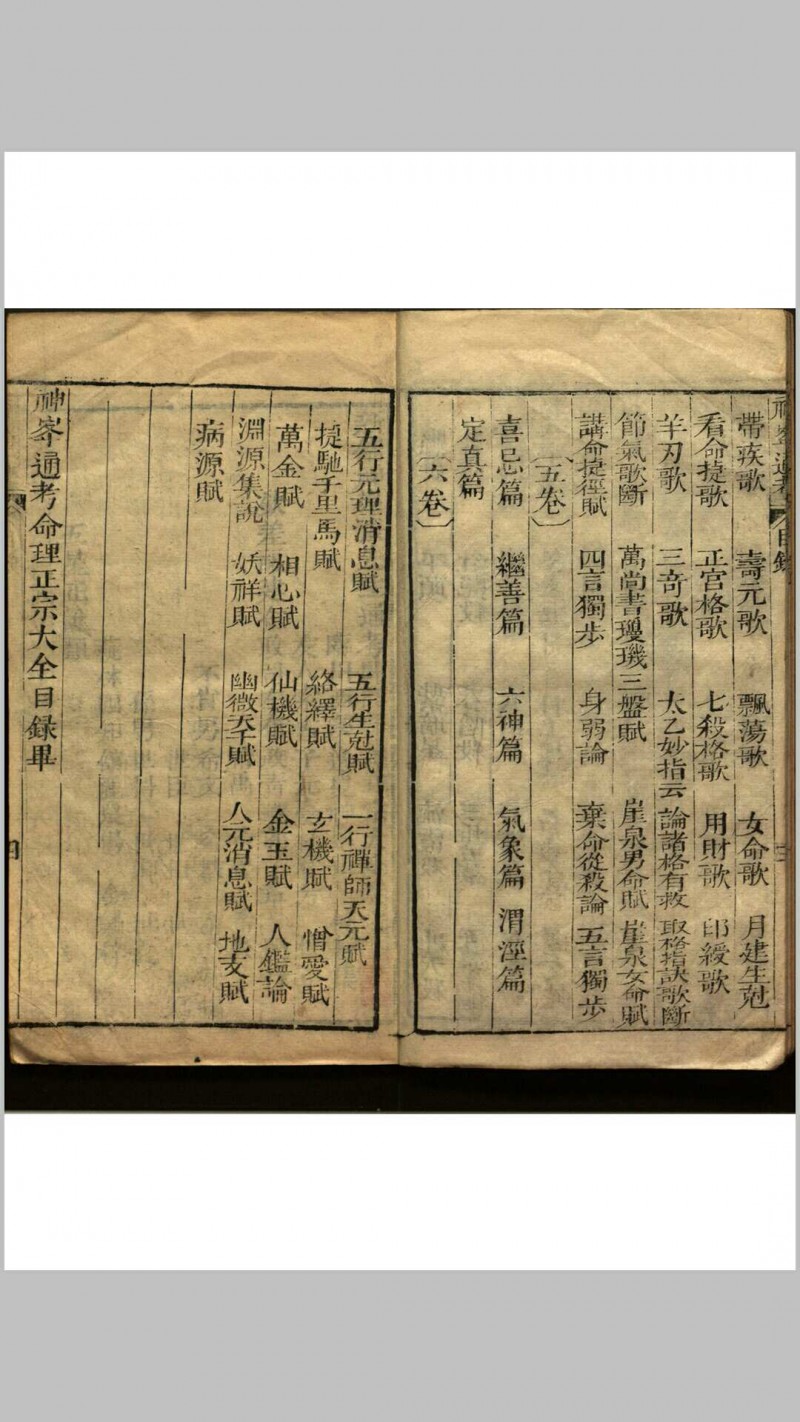 神峯通考 目錄
帶疾歌 壽元歌 飄蕩歌 女命歌 月建生尅
看命捷歌 正官格歌 七殺格歌 用財歌 印綬歌
羊刃歌 三奇歌 太乙妙指云 論諸格有救 取格指訣歌斷
節氣歌斷 萬尚書瓊璣三盤賦 崖泉男命賦 崖泉女命賦
講命捷徑賦 四言獨步 身弱論 棄命從殺論 五言獨步
五卷
喜忌篇 繼善篇 六神篇 氣象篇 渭涇篇
定真篇
六卷
五行元理消息賦 五行生尅賦 一行禪師天元賦
捉馳千里馬賦 絡繹賦 玄機賦 憎愛賦
萬金賦 相心賦 仙機賦 金玉賦 人鑑論
淵源集說 妖祥賦 幽微天千賦 人元消息賦 地支賦
病源賦
神峯通考命理正宗大全目録畢